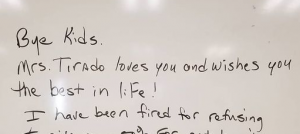 Bye Kids.
Mrs. Tirado loves you and wishes you
the best in life!
I have been fired for refusing